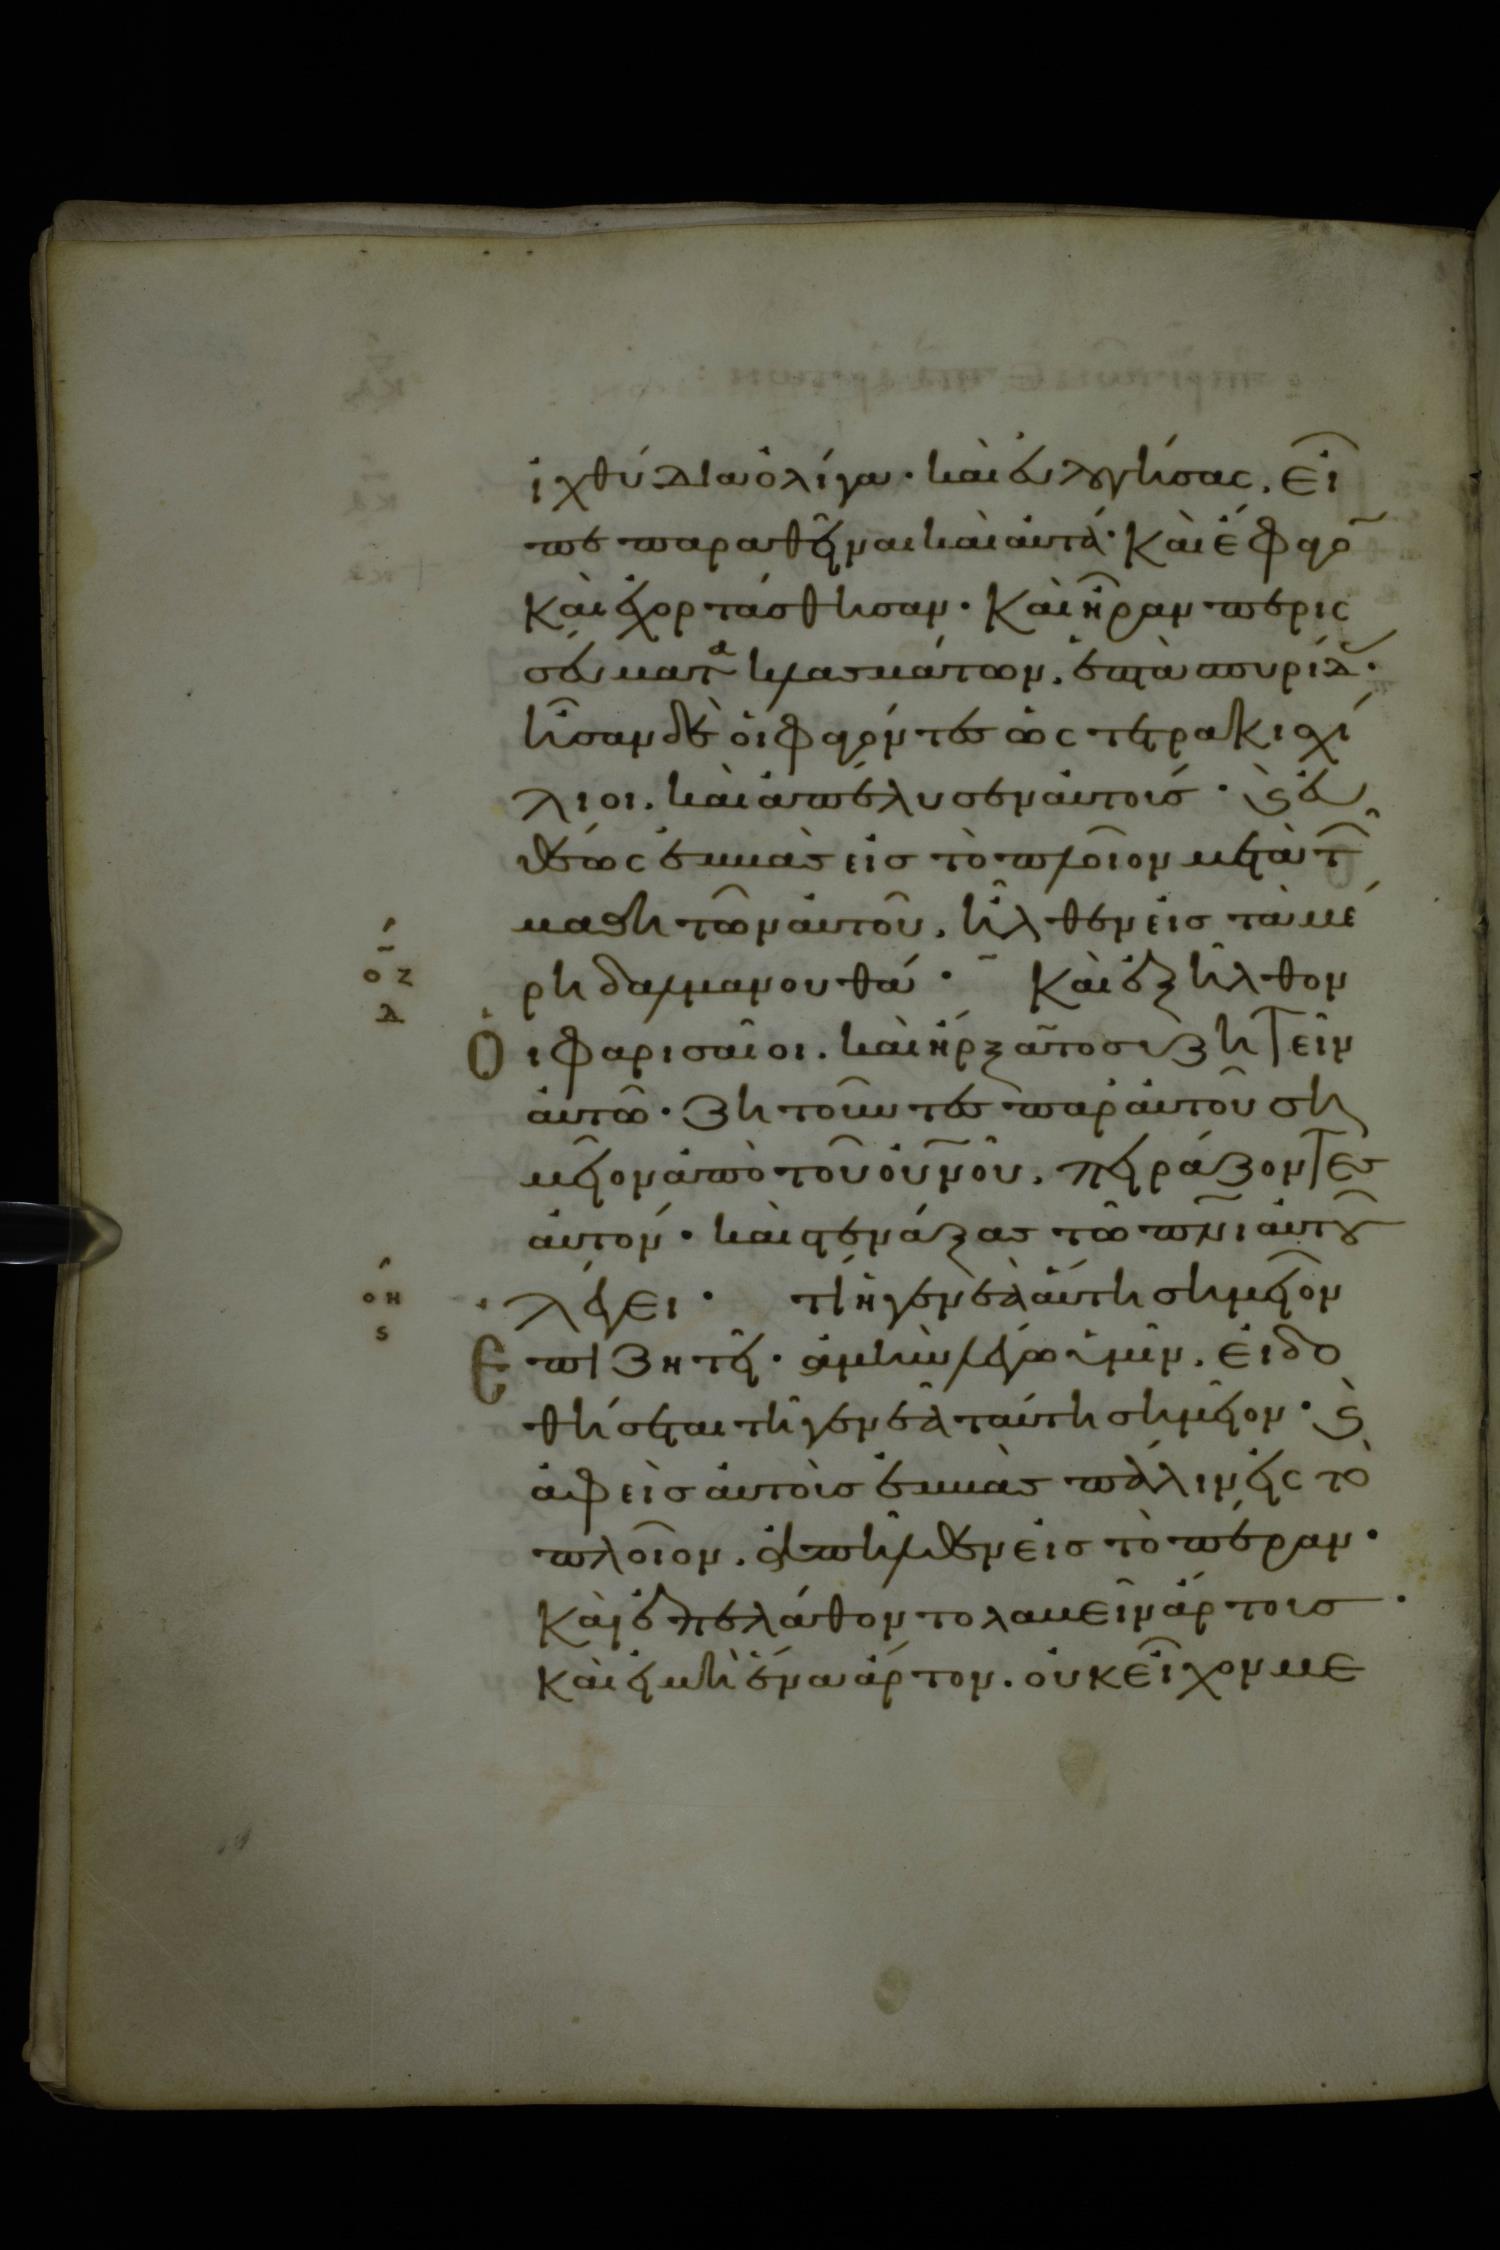 ἰχθύδια ὀλίγα · καὶ εὐλογήσας, εἶ
πε παραθῆναι καὶ αὐτά · Καὶ ἔφαγο̅
Καὶ ἐχορτάσθησαν · Καὶ ἦραν περις
σεύματα κλασμάτων, ἑπτὰ σπυρίδ ·
ἦσαν δὲ οἱ φαγόντες ὡς τετρακισχί
λιοι, καὶ ἀπέλυσεν αὐτούς · ϗ εὐ
θέως ἐμβὰς εἰς τὸ πλοῖον μετὰ τ
μαθητῶν αὐτοῦ, ἦλθεν εἰς τὰ μέ
ρη δαλμανουθά · Καὶ ἐξῆλθον
οζ
δ
Οἱ φαρισαῖοι, καὶ ἤρξαντο συζητεῖν
αὐτῶ · ζητοῦντες παρ' αὐτοῦ ση
μεῖον ἀπὸ τοῦ οὐνοῦ, πειράζοντες
αὐτόν · καὶ στενάξας τῶ πνι αὐτοῦ
οη
ς
λέγει · τί ἡ γενεὰ αὕτη σημεῖον
Ἐπιζητεῖ · ἀμὴν λέγω ὑμῖν, εἰ δο
θήσεται τῇ γενεᾷ ταύτη σημεῖον · ϗ
ἀφεὶς αὐτοὺς ἐμβὰς πάλιν εἰς τὸ
πλοῖον, ἀπῆλθεν εἰς τὸ πέραν ·
Καὶ ἐπελάθοντο λαβεῖν ἄρτους ·
Καὶ εἰ μὴ ἕνα ἄρτον, οὐκ εἶχον με